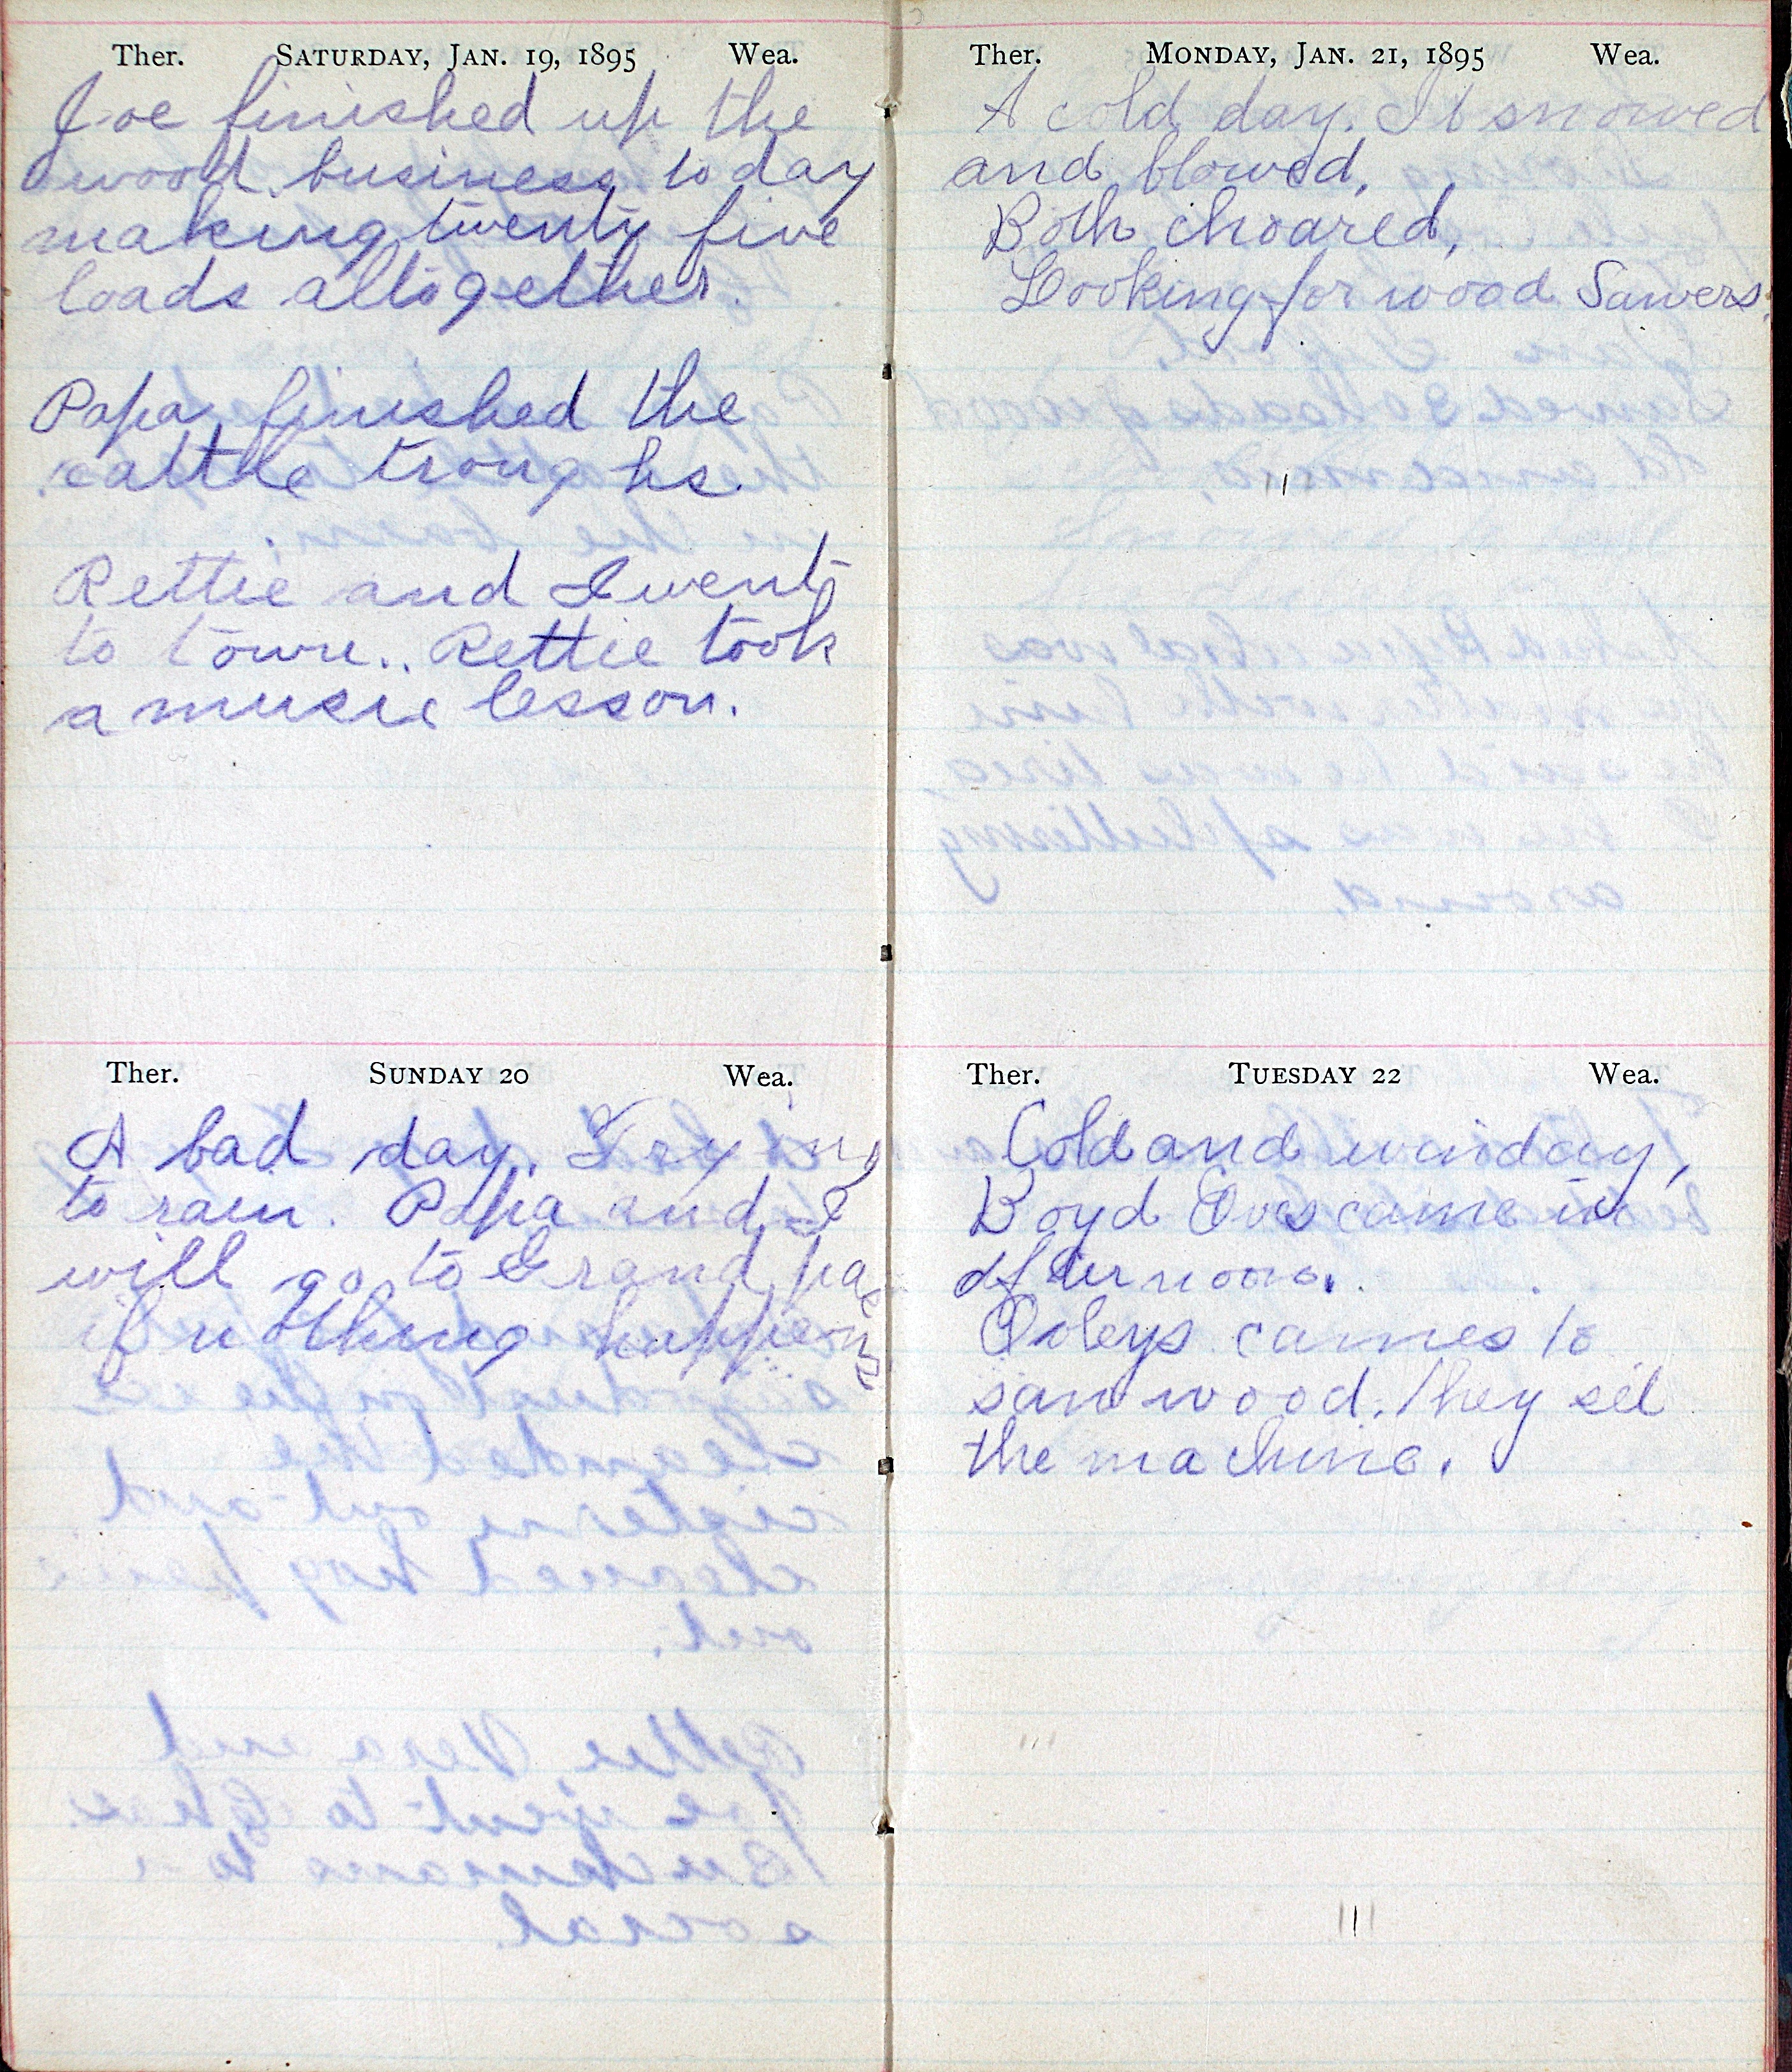 Ther. SATURDAY, JAN. 19, 1895 Wea.
Joe finished up the
wood business today
making twenty five
loads altogether.
Papa finished the
cattle troughs.
Rettie and I went
to town. Rettie took
a music lesson.
Ther. SUNDAY 20 Wea.
A bad day. Trying
to rain. Papa and I
will go to Grand pa
if nothing happens
Ther. MONDAY, JAN. 21, 1895 Wea.
A cold day. It snowed
and blowed.
Both choared.
Looking for wood Sawers.
Ther. TUESDAY 22 Wea.
Cold and winday,
Boyd came in
afternoon.
cames to
saw wood. They set
the machine.